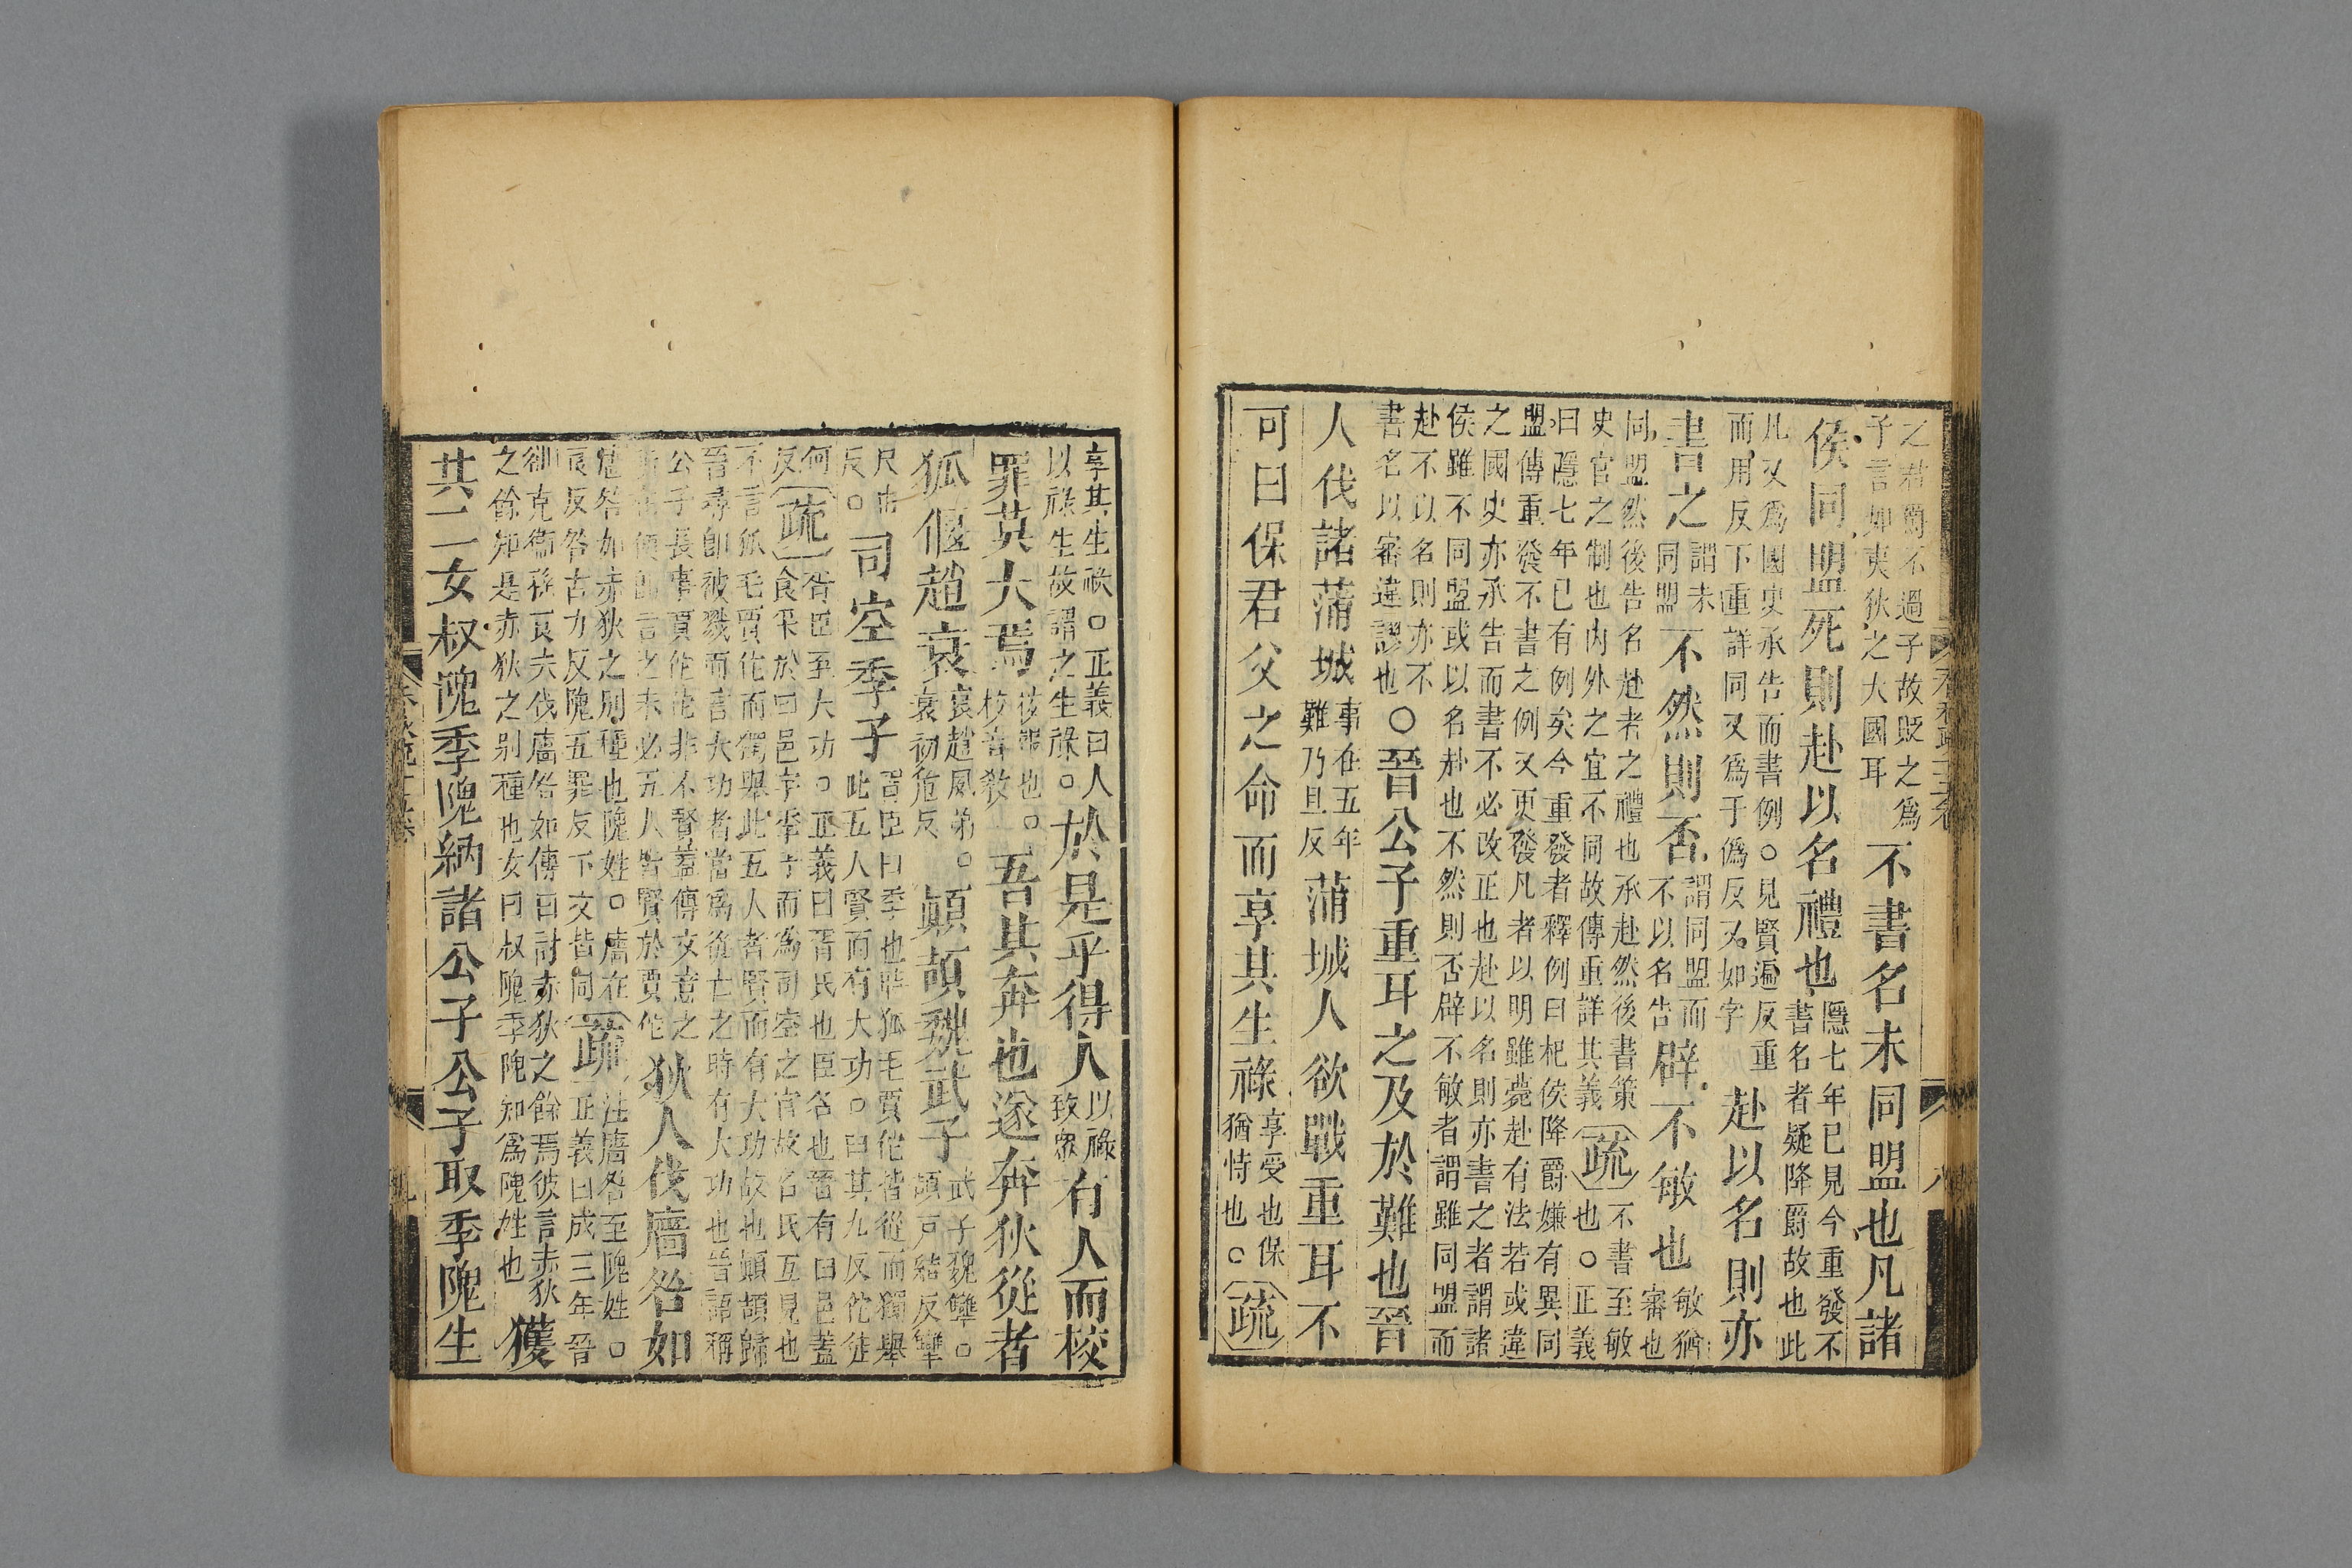 之君爵不過子故貶之爲
子言如夷狄之大國耳
不書名未同盟也凡諸
侯同盟死則赴以名禮也
隱七年已見今重發不
書名者疑降爵故也此
凡又爲國史承告而書例○見賢遍反重
而用反下重詳同又爲于僞反又如字
赴以名則亦
書之
謂未
同盟
不然則否
謂同盟而
不以名告
辟不敏也
敏猶
審也
同盟然後告名赴者之禮也承赴然後書策
史官之制也內外之宜不同故傳重詳其義
疏
不書至敏
也○正義
曰隱七年已有例矣今重發者釋例曰杞侯降爵嫌有異同
盟傳重發不書之例又更發凡者以明雖薨赴有法若或違
之國史亦承告而書不必改正也赴以名則亦書之者謂諸
侯雖不同盟或以名赴也不然則否辟不敏者謂雖同盟而
赴不以名則亦不
書名以審違謬也
○晉公子重耳之及於難也晉
人伐諸蒲城
事在五年
難乃旦反
蒲城人欲戰重耳不
可曰保君父之命而享其生祿
享受也保
猶恃也○
疏
享其生祿○正義曰人
以祿生故謂之生祿○
於是乎得人
以祿
致眾
有人而校
罪莫大焉
校報也○
校音教
吾其奔也遂奔狄從者
狐偃趙衰
衰趙夙弟○
衰初危反
顛頡魏武子
武子魏犫○
頡戶結反犫
尺由
反○
司空季子
胥臣曰季也時狐毛賈佗皆從而獨舉
此五人賢而有大功○曰其九反佗徒
何
反
疏
胥臣至大功○正義曰胥氏也臣名也晉有曰邑蓋
食采於曰邑字季子而爲司空之官故名氏互見也
不言狐毛賈佗而獨舉此五人者賢而有大功故也顛頡歸
晉尋卽被戮而言大功者當爲從亡之時有大功也晉語稱
公子長事賈佗佗非不賢蓋傳文意之
所在便卽言之未必五人皆賢於賈佗
狄人伐廧咎如
廧咎如赤狄之別種也隗姓○廧在
良反咎古刀反隗五罪反下文皆同
疏
注廧咎至隗姓○
正義曰成三年晉
郤克衞孫良夫伐廧咎如傳曰討赤狄之餘焉彼言赤狄
之餘知是赤狄之別種也女曰叔隗季隗知爲隗姓也
獲
其二女叔隗季隗納諸公子公子取季隗生